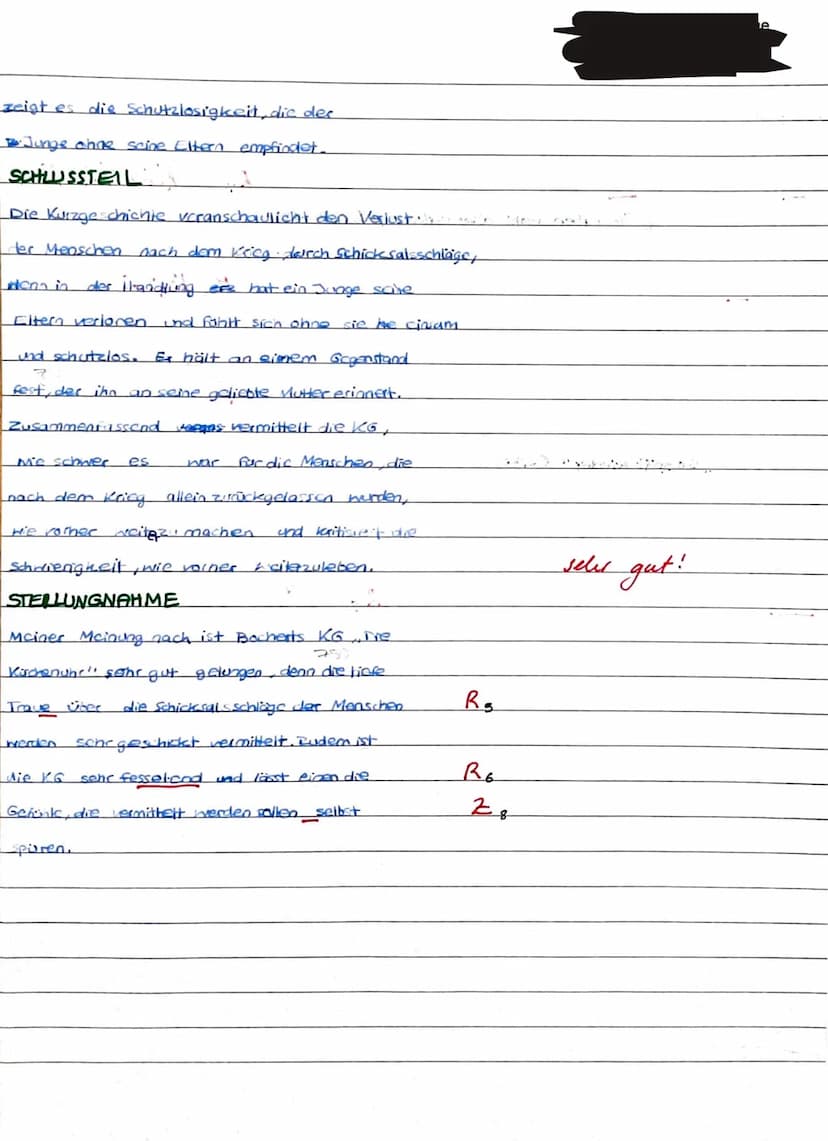 zeigt es die Schutzlosigkeit, die der
Junge ohne seine Eltern empfindet.
SCHLUSSTEIL
Die Kurzgeschichte veranschaulicht den Verlust
der Menschen nach dem Krieg durch Schicksalsschläge,
denn in der Handlung hat ein Junge seine
Eltern verloren und fühlt sich ohne sie einsam
und schutzlos. Er hält an einem Gegenstand
fest, der ihn an seine geliebte Mutter erinnert.
Zusammenfassend vermittelt die KG,
wie schwer es war für die Menschen, die
nach dem Krieg allein zurückgelassen wurden,
wie vorher weiterzumachen und kritisiert die
Schwierigkeit, wie vorher weiterzuleben.
sehr gut!
STELLUNGNAHME
Meiner Meinung nach ist Bocherts KG „Die
Küchenuhr" sehr gut gelungen, denn die tiefe
Traue über die Schicksalsschläge der Menschen R5
werden sehr geschickt vermittelt. Zudem ist
die KG sehr fesselend und lässt einen die R6
Gefühle, die vermittelt werden sollen selbst Z8
spüren.